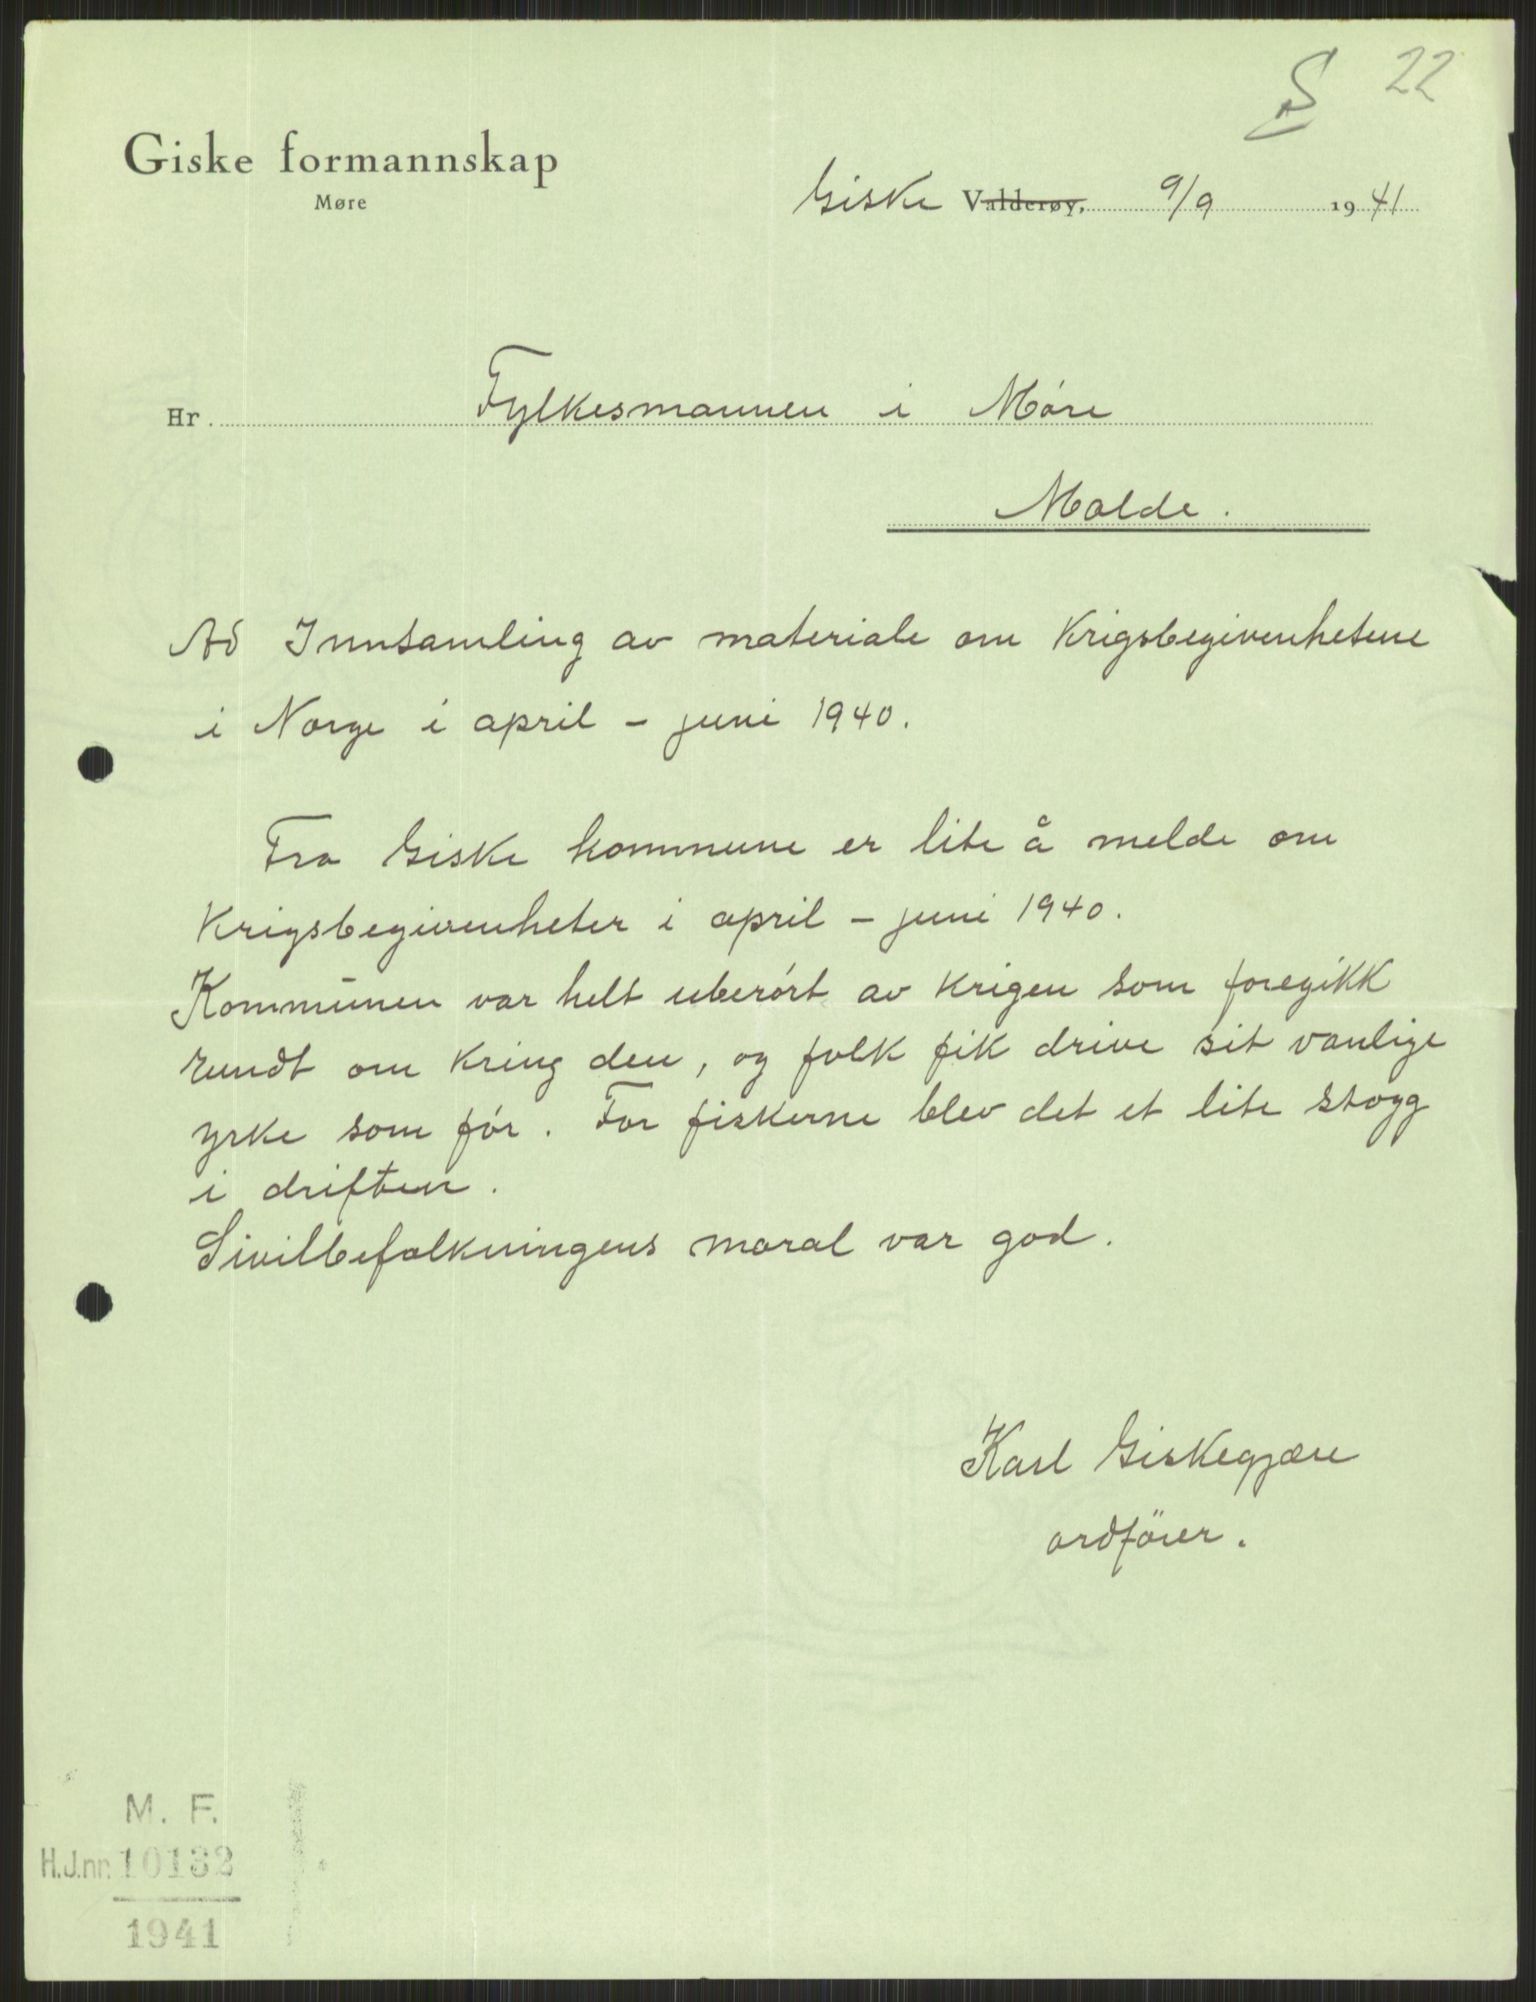 S 22
Giske formannskap
Møre
Giske Valderøy, 9/9 1941
Hr. Fylkesmannen i Møre
Molde.
Ad Innsamling av materiale om Krigsbegivenhetene
i Norge i april - juni 1940.
Fra Giske kommune er lite å melde om
Krigsbegivenheter i april - juni 1940.
Kommunen var helt uberørt av krigen som foregikk
rundt om kring den, og folk fik drive sit vanlige
yrke som før. For fiskerne blev det et lite stogg
i driften.
Sivilbefolkningens moral var god.
Karl Giskegjære
ordförer.
M. F.
H.J.nr. 10132
1941